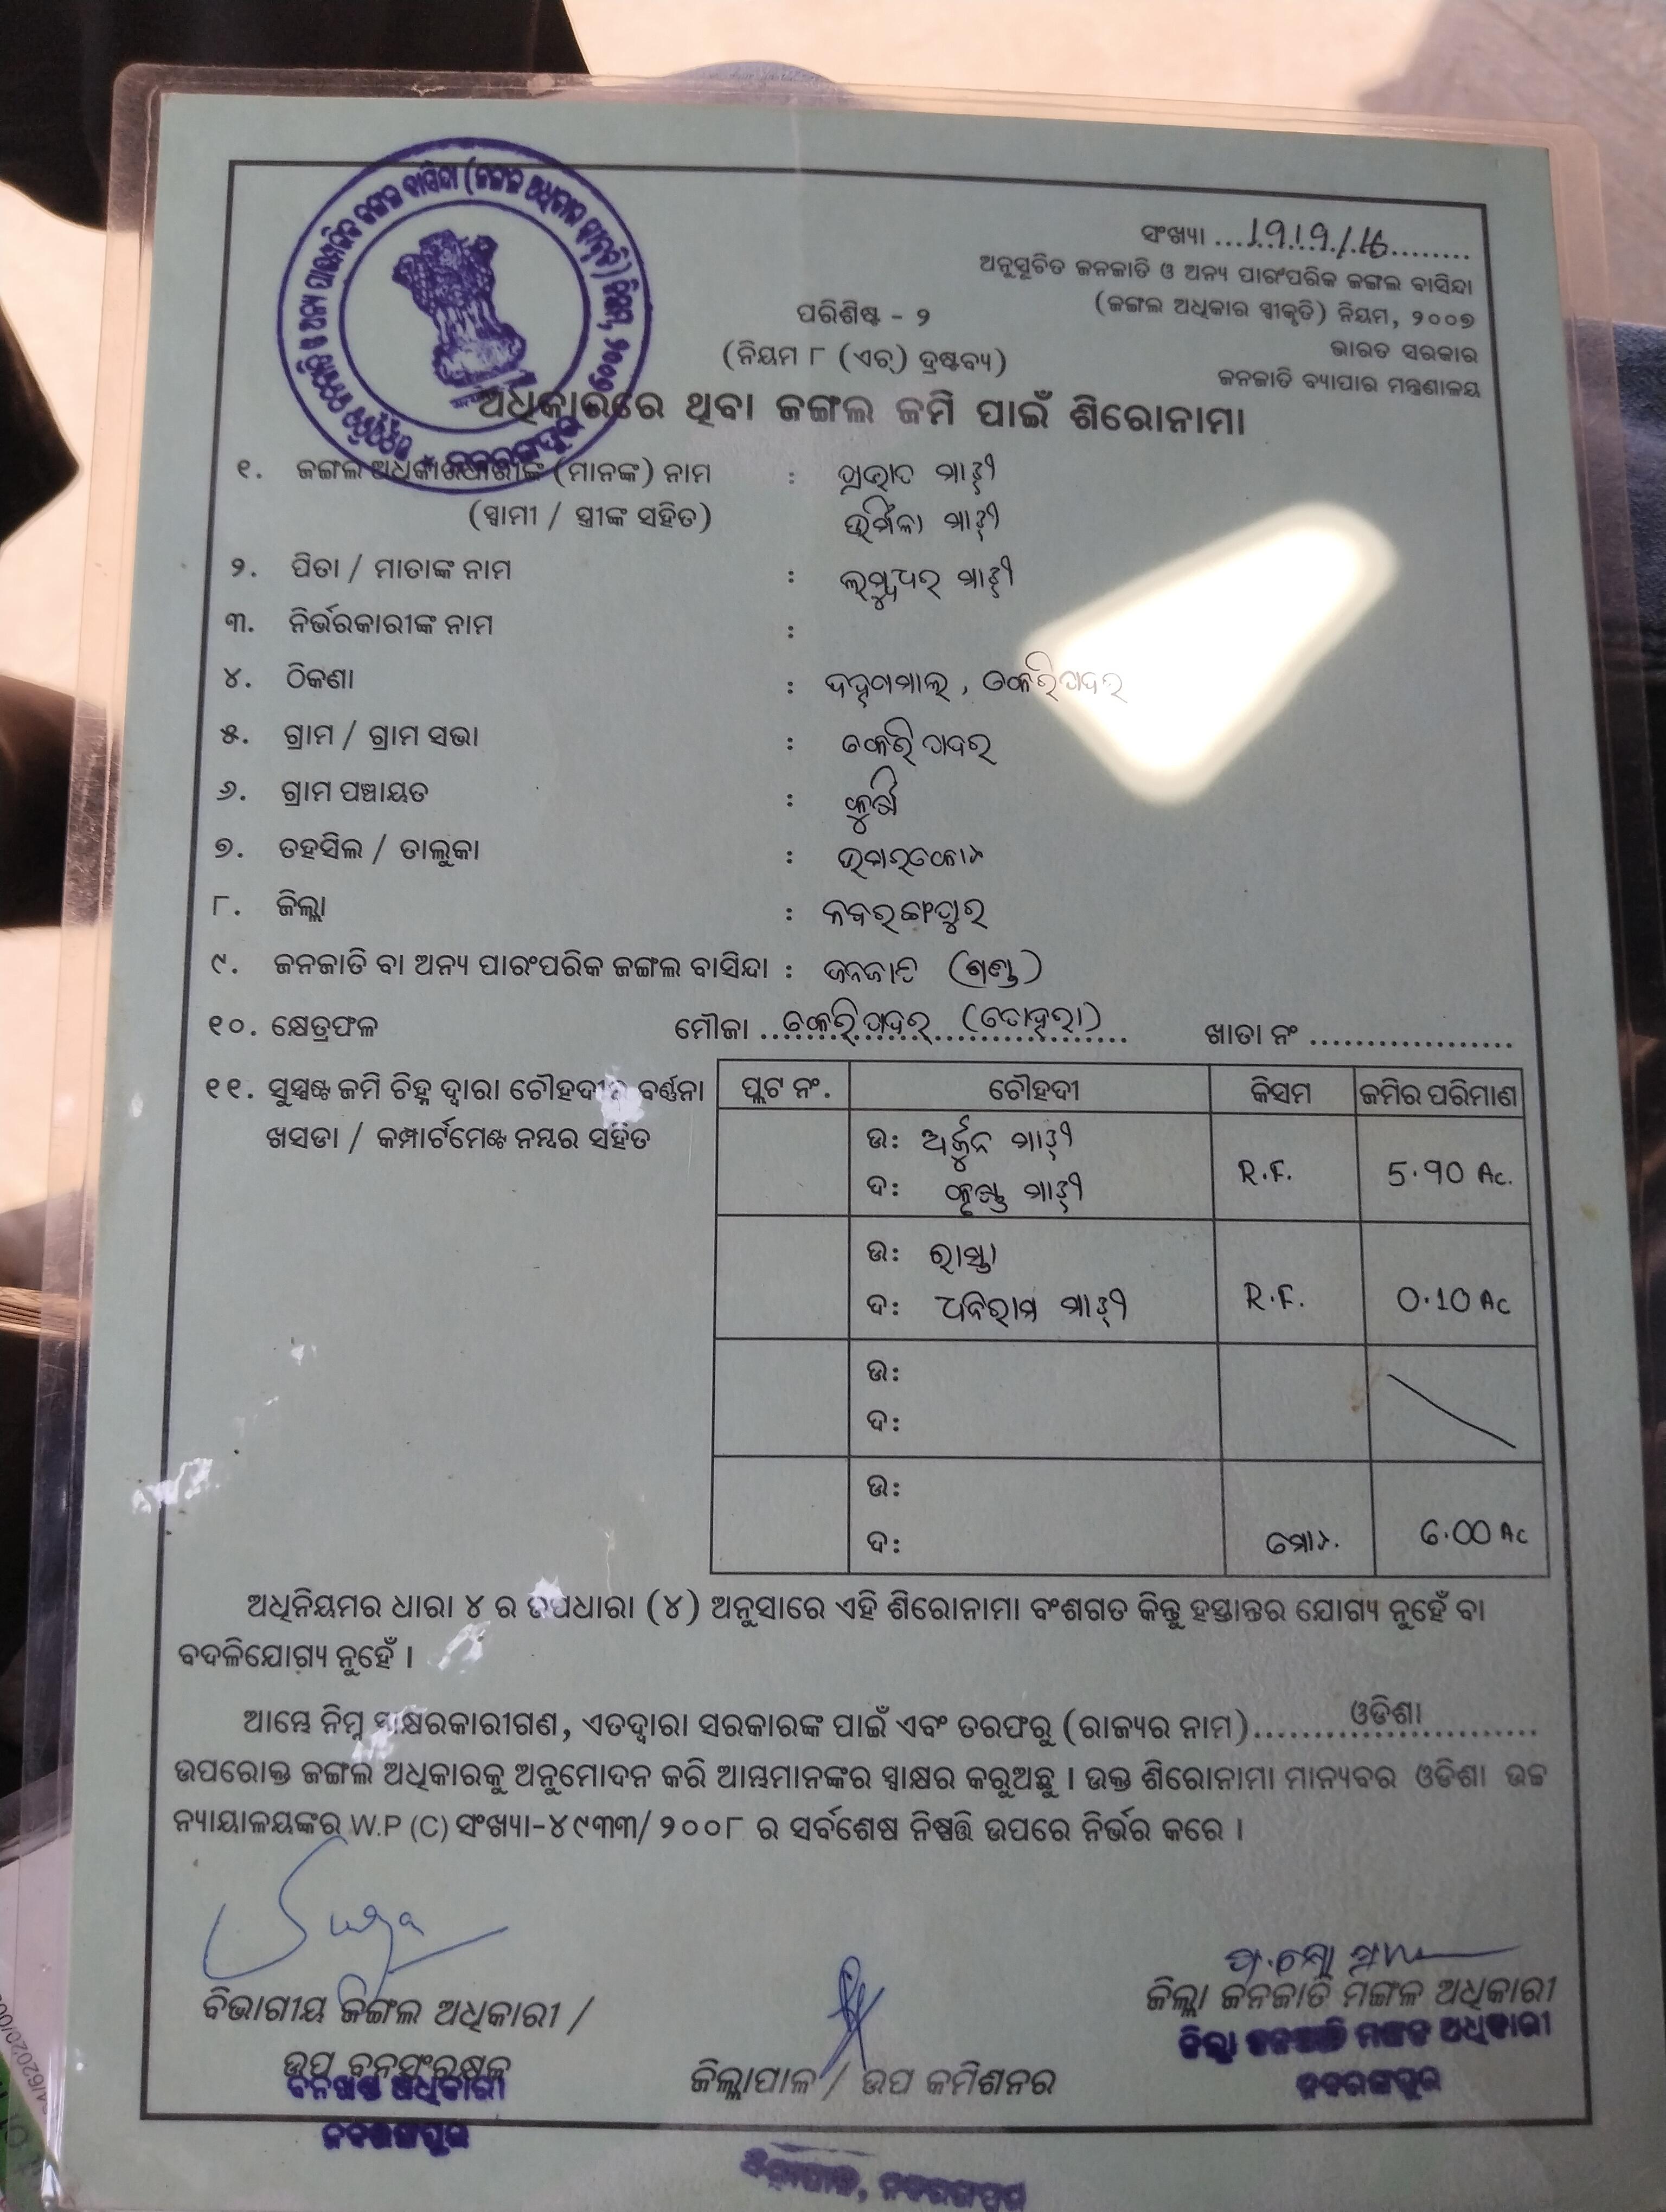 ସଂଖ୍ୟା ...1919/16........
ଅନୁସୂଚିତ ଜନଜାତି ଓ ଅନ୍ୟ ପାରଂପରିକ ଜଙ୍ଗଲ ବାସିନ୍ଦା
(ଜଙ୍ଗଲ ଅଧିକାର ସ୍ୱୀକୃତି) ନିୟମ, ୨୦୦୭
ଭାରତ ସରକାର
ଜନଜାତି ବ୍ୟାପାର ମନ୍ତ୍ରଣାଳୟ
ପରିଶିଷ୍ଟ - ୨
(ନିୟମ ୮ (ଏଚ୍) ଦ୍ରଷ୍ଟବ୍ୟ)
ଅଧିକାରରେ ଥିବା ଜଙ୍ଗଲ ଜମି ପାଇଁ ଶିରୋନାମା
୧. ଜଙ୍ଗଲ ଅଧିକାରଧାରୀଙ୍କ (ମାନଙ୍କ) ନାମ : ପ୍ରଭାତ ମାଝୀ
(ସ୍ୱାମୀ / ସ୍ତ୍ରୀଙ୍କ ସହିତ) ଉର୍ମିଳା ମାଝୀ
୨. ପିତା / ମାତାଙ୍କ ନାମ : ଲମ୍ବୁଧର ମାଝୀ
୩. ନିର୍ଭରକାରୀଙ୍କ ନାମ :
୪. ଠିକଣା : ଟେକେରିପଦର
୫. ଗ୍ରାମ / ଗ୍ରାମ ସଭା : ଟେକେରିପଦର
୬. ଗ୍ରାମ ପଞ୍ଚାୟତ : କୁର୍ସି
୭. ତହସିଲ / ତାଲୁକା : ଉମରକୋଟ
୮. ଜିଲ୍ଲା : ନବରଙ୍ଗପୁର
୯. ଜନଜାତି ବା ଅନ୍ୟ ପାରଂପରିକ ଜଙ୍ଗଲ ବାସିନ୍ଦା : ଜନଜାତି (ଗଣ୍ଡ)
୧୦. କ୍ଷେତ୍ରଫଳ ମୌଜା ..ଟେକେରିପଦର (ଡୋହରା).. ଖାତା ନଂ ..................
୧୧. ସୁସ୍ପଷ୍ଟ ଜମି ଚିହ୍ନ ଦ୍ୱାରା ଚୌହଦୀର ବର୍ଣ୍ଣନା
ଖସଡା / କମ୍ପାର୍ଟମେଣ୍ଟ ନମ୍ବର ସହିତ
ପ୍ଲଟ ନଂ. ଚୌହଦୀ କିସମ ଜମିର ପରିମାଣ
ଉ: ଅର୍ଜୁନ ମାଝୀ
ଦ: କୃଷ୍ଣ ମାଝୀ R.F. 5.90 Ac.
ଉ: ରାସ୍ତା
ଦ: ଧନିରାମ ମାଝୀ R.F. 0.10 Ac
ଉ:
ଦ:
ଉ:
ଦ: ମୋଟ. 6.00 Ac
ଅଧିନିୟମର ଧାରା ୪ ର ଉପଧାରା (୪) ଅନୁସାରେ ଏହି ଶିରୋନାମା ବଂଶଗତ କିନ୍ତୁ ହସ୍ତାନ୍ତର ଯୋଗ୍ୟ ନୁହେଁ ବା
ବଦଳିଯୋଗ୍ୟ ନୁହେଁ ।
ଆମ୍ଭେ ନିମ୍ନ ସ୍ୱାକ୍ଷରକାରୀଗଣ, ଏତଦ୍ୱାରା ସରକାରଙ୍କ ପାଇଁ ଏବଂ ତରଫରୁ (ରାଜ୍ୟର ନାମ)..........ଓଡିଶା..........
ଉପରୋକ୍ତ ଜଙ୍ଗଲ ଅଧିକାରକୁ ଅନୁମୋଦନ କରି ଆମ୍ଭମାନଙ୍କର ସ୍ୱାକ୍ଷର କରୁଅଛୁ । ଉକ୍ତ ଶିରୋନାମା ମାନ୍ୟବର ଓଡିଶା ଉଚ୍ଚ
ନ୍ୟାୟାଳୟଙ୍କର W.P (C) ସଂଖ୍ୟା-୪୯୩୩/ ୨୦୦୮ ର ସର୍ବଶେଷ ନିଷ୍ପତ୍ତି ଉପରେ ନିର୍ଭର କରେ ।
ବିଭାଗୀୟ ଜଙ୍ଗଲ ଅଧିକାରୀ /
ଉପ ବନସଂରକ୍ଷକ
ବନଖଣ୍ଡ ଅଧିକାରୀ
ନବରଙ୍ଗପୁର
ଜିଲ୍ଲାପାଳ / ଉପ କମିଶନର
ଜିଲ୍ଲାପାଳ, ନବରଙ୍ଗପୁର
ଜିଲ୍ଲା ଜନଜାତି ମଙ୍ଗଳ ଅଧିକାରୀ
ଜିଲ୍ଲା ଜନଜାତି ମଙ୍ଗଳ ଅଧିକାରୀ
ନବରଙ୍ଗପୁର